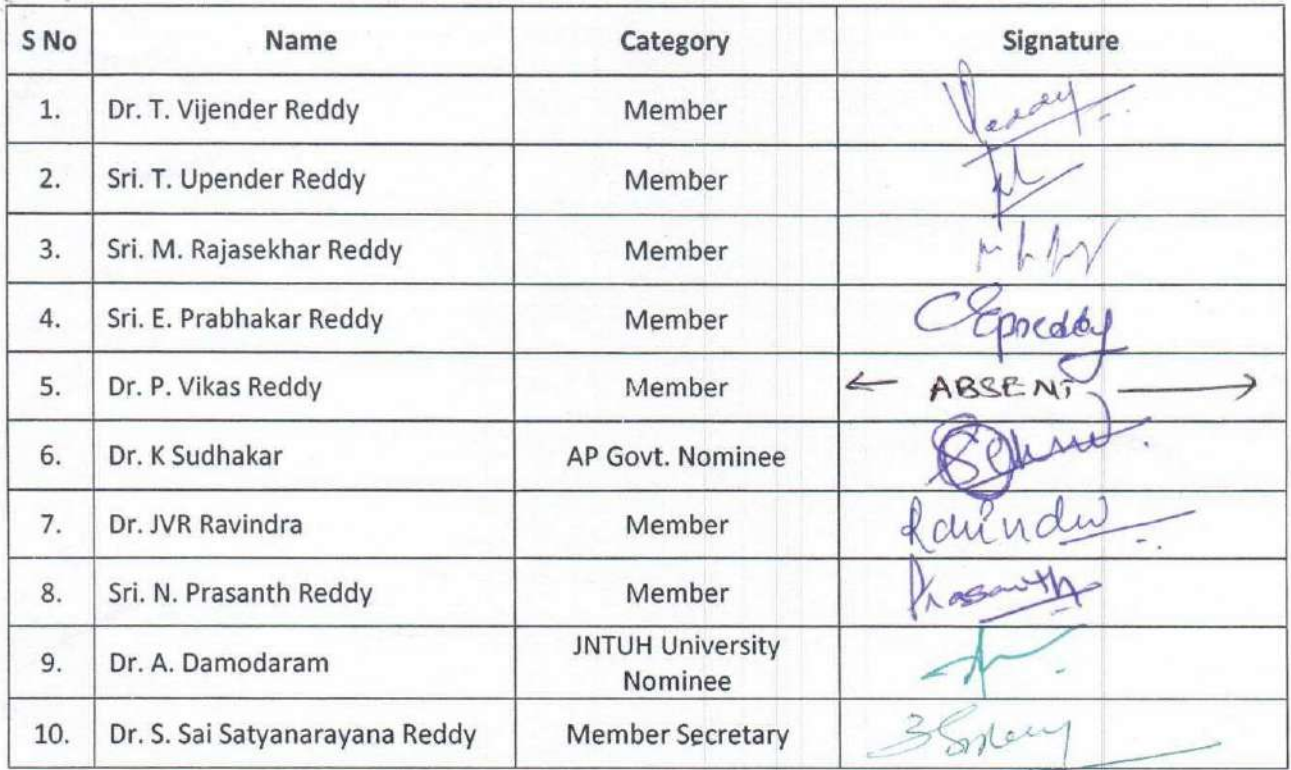 S No Name Category Signature
1. Dr. T. Vijender Reddy Member Reddy
2. Sri. T. Upender Reddy Member
3. Sri. M. Rajasekhar Reddy Member
4. Sri. E. Prabhakar Reddy Member Epreddy
5. Dr. P. Vikas Reddy Member ← ABSENT →
6. Dr. K Sudhakar AP Govt. Nominee
7. Dr. JVR Ravindra Member Ravindra
8. Sri. N. Prasanth Reddy Member Prasanth
9. Dr. A. Damodaram JNTUH University
Nominee
10. Dr. S. Sai Satyanarayana Reddy Member Secretary